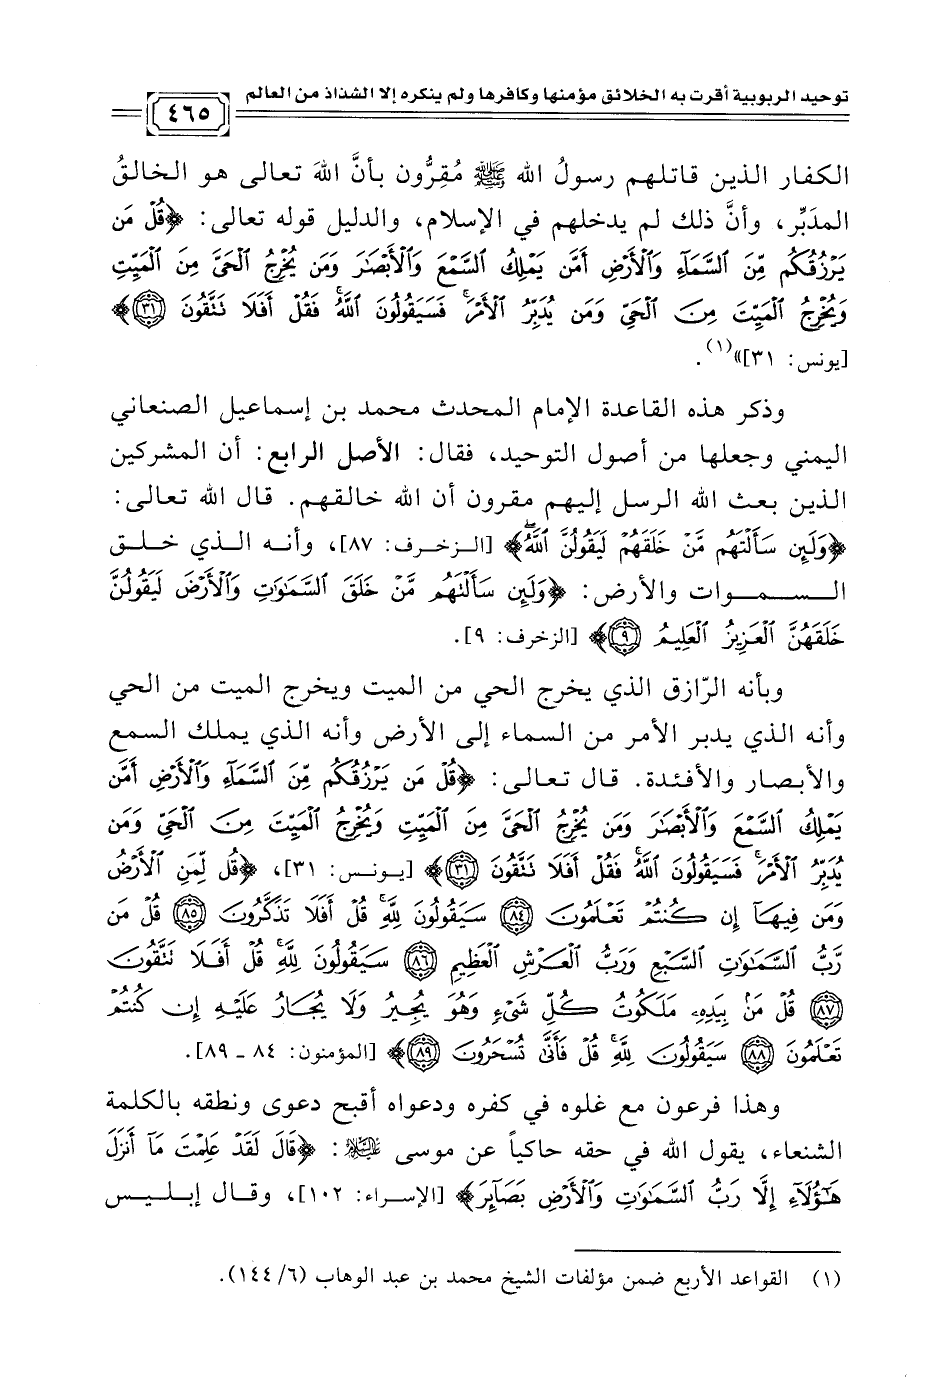 توحيد الربوبية أقرت به الخلائق مؤمنها وكافرها ولم ينكره إلا الشذاذ من العالم
٤٦٥
الكفار الذين قاتلهم رسولُ الله ﷺ مُقِرُّون بأنَّ اللهَ تعالى هو الخالقُ
المدَبِّر، وأنَّ ذلك لم يدخلهم في الإسلام، والدليل قوله تعالى: ﴿قُلْ مَن
يَرْزُقُكُم مِّنَ السَّمَآءِ وَالْأَرْضِ أَمَّن يَمْلِكُ السَّمْعَ وَالْأَبْصَٰرَ وَمَن يُخْرِجُ الْحَيَّ مِنَ الْمَيِّتِ
وَيُخْرِجُ الْمَيِّتَ مِنَ الْحَيِّ وَمَن يُدَبِّرُ الْأَمْرَۚ فَسَيَقُولُونَ اللَّهُۚ فَقُلْ أَفَلَا تَتَّقُونَ ٣١﴾
[يونس: ٣١]»(١).
وذكر هذه القاعدة الإمام المحدث محمد بن إسماعيل الصنعاني
اليمني وجعلها من أصول التوحيد، فقال: الأصل الرابع: أن المشركين
الذين بعث الله الرسل إليهم مقرون أن الله خالقهم. قال الله تعالى:
﴿وَلَئِن سَأَلْتَهُم مَّنْ خَلَقَهُمْ لَيَقُولُنَّ اللَّهُۖ﴾ [الزخرف: ٨٧]، وأنه الذي خلق
السموات والأرض: ﴿وَلَئِن سَأَلْتَهُم مَّنْ خَلَقَ السَّمَٰوَٰتِ وَالْأَرْضَ لَيَقُولُنَّ
خَلَقَهُنَّ الْعَزِيزُ الْعَلِيمُ ٩﴾ [الزخرف: ٩].
وبأنه الرّازق الذي يخرج الحي من الميت ويخرج الميت من الحي
وأنه الذي يدبر الأمر من السماء إلى الأرض وأنه الذي يملك السمع
والأبصار والأفئدة. قال تعالى: ﴿قُلْ مَن يَرْزُقُكُم مِّنَ السَّمَآءِ وَالْأَرْضِ أَمَّن
يَمْلِكُ السَّمْعَ وَالْأَبْصَٰرَ وَمَن يُخْرِجُ الْحَيَّ مِنَ الْمَيِّتِ وَيُخْرِجُ الْمَيِّتَ مِنَ الْحَيِّ وَمَن
يُدَبِّرُ الْأَمْرَۚ فَسَيَقُولُونَ اللَّهُۚ فَقُلْ أَفَلَا تَتَّقُونَ ٣١﴾ [يونس: ٣١]، ﴿قُل لِّمَنِ الْأَرْضُ
وَمَن فِيهَآ إِن كُنتُمْ تَعْلَمُونَ ٨٤ سَيَقُولُونَ لِلَّهِۚ قُلْ أَفَلَا تَذَكَّرُونَ ٨٥ قُلْ مَن
رَّبُّ السَّمَٰوَٰتِ السَّبْعِ وَرَبُّ الْعَرْشِ الْعَظِيمِ ٨٦ سَيَقُولُونَ لِلَّهِۚ قُلْ أَفَلَا تَتَّقُونَ
٨٧ قُلْ مَنۢ بِيَدِهِۦ مَلَكُوتُ كُلِّ شَيْءٍ وَهُوَ يُجِيرُ وَلَا يُجَارُ عَلَيْهِ إِن كُنتُمْ
تَعْلَمُونَ ٨٨ سَيَقُولُونَ لِلَّهِۚ قُلْ فَأَنَّىٰ تُسْحَرُونَ ٨٩﴾ [المؤمنون: ٨٤ ـ ٨٩].
وهذا فرعون مع غلوه في كفره ودعواه أقبح دعوى ونطقه بالكلمة
الشنعاء، يقول الله في حقه حاكياً عن موسى عليه السلام: ﴿قَالَ لَقَدْ عَلِمْتَ مَآ أَنزَلَ
هَٰٓؤُلَآءِ إِلَّا رَبُّ السَّمَٰوَٰتِ وَالْأَرْضِ بَصَآئِرَ﴾ [الإسراء: ١٠٢]، وقال إبليس
(١) القواعد الأربع ضمن مؤلفات الشيخ محمد بن عبد الوهاب (٦/ ١٤٤).